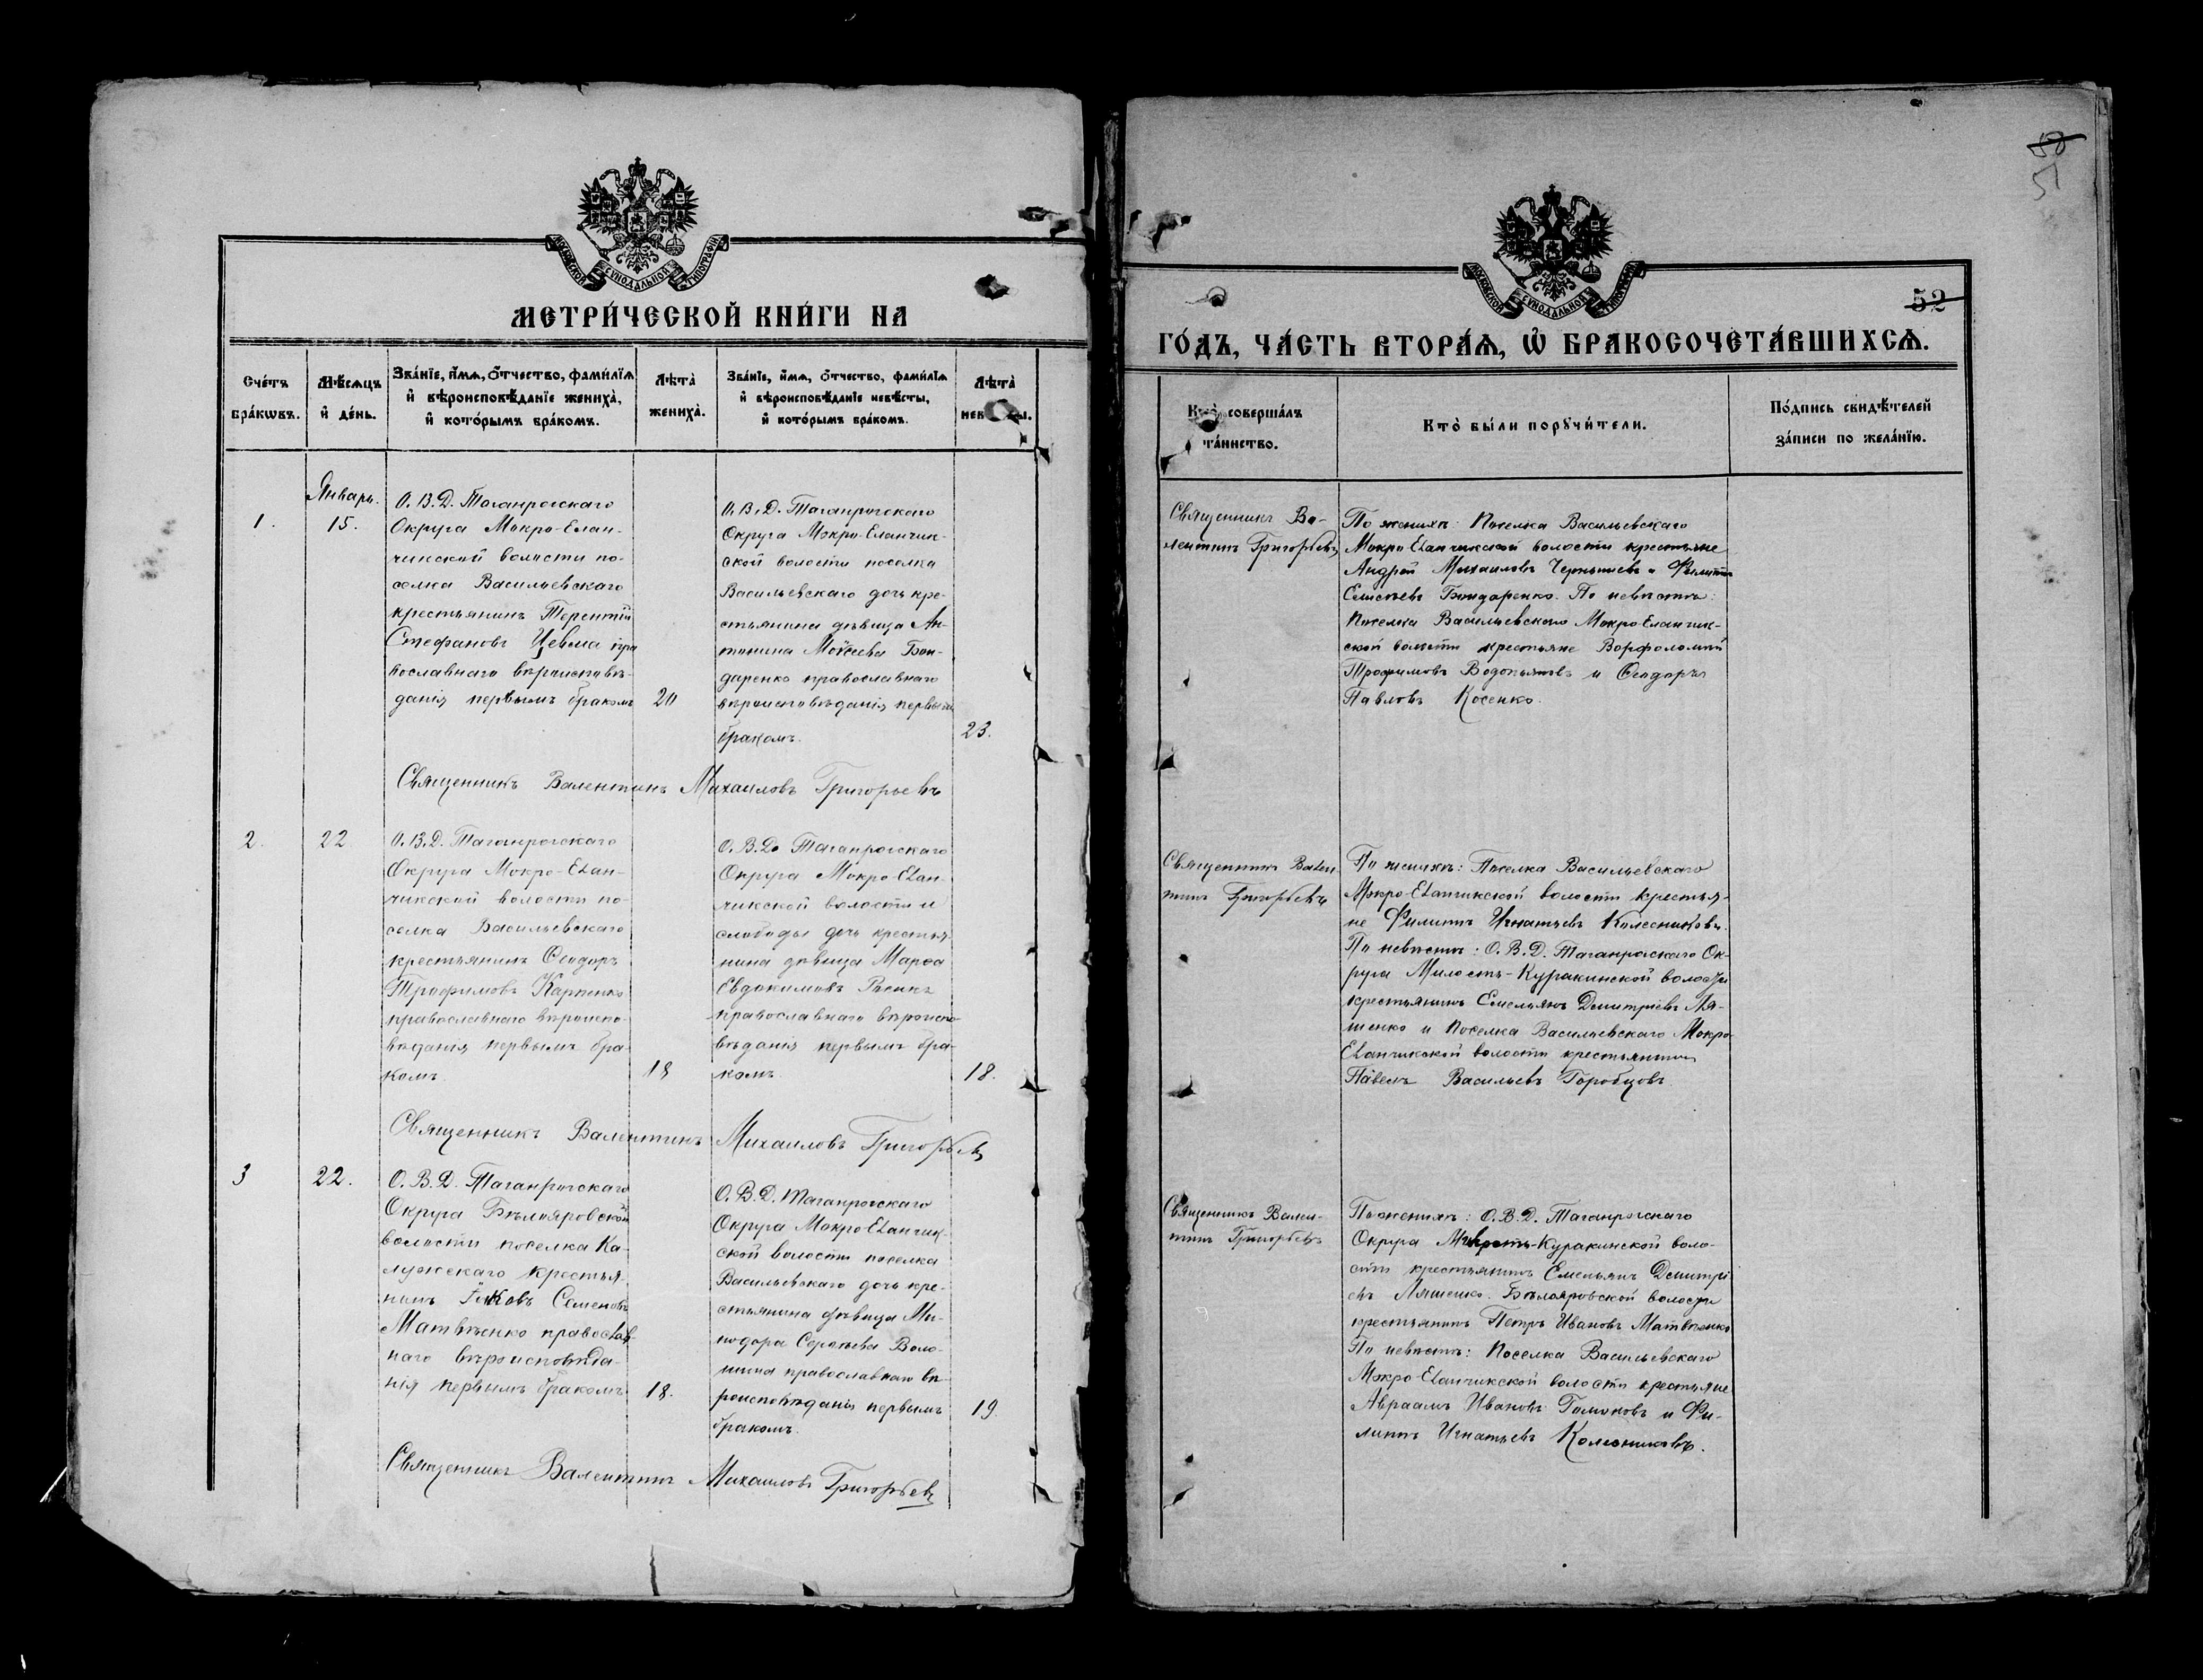 МОСКОВСКОЙ СѴНОДАЛЬНОЙ ТИПОГРАФІИ
МЕТРИ́ЧЕСКОЙ КНИ́ГИ НА
Сче́тъ бра́кѡвъ.
Мѣ́сѧцъ и҆ де́нь.
Зва́нїе, и҆́мѧ, ѻ҆́тчество, фами́лїѧ
и҆ вѣроисповѣ́данїе жениха̀,
и҆ кото́рымъ бра́комъ.
Лѣта̀ жениха̀.
Зва́нїе, и҆́мѧ, ѻ҆́тчество, фами́лїѧ
и҆ вѣроисповѣ́данїе невѣ́сты,
и҆ кото́рымъ бра́комъ.
Лѣта̀
Январь.
1.
15.
О. В. Д. Таганрогскаго
Округа Мокро-Елан-
чикской волости по-
селка Васильевскаго
крестьянинъ Терентій
Стефановъ Цевма пра
вославнаго вѣроисповѣ-
данія первымъ бракомъ
20
О. В. Д. Таганрогскаго
Округа Мокро-Еланчик-
ской волости поселка
Васильевскаго дочь кре-
стьянина дѣвица Ан-
тонина Моѵсеева Бон-
даренко православнаго
вѣроисповѣданія первымъ
бракомъ.
23.
Священникъ Валентинъ Михаиловъ Григорьевъ
2.
22
О. В. Д. Таганрогскаго
Округа Мокро-Елан-
чикской волости по-
селка Васильевскаго
крестьянинъ Ѳеодоръ
Трофимовъ Карпенко
православнаго вѣроиспо-
вѣданія первымъ бра-
комъ.
18
О. В. Д. Таганрогскаго
Округа Мокро-Елан-
чикской волости и
слободы дочь крестья
нина дѣвица Марѳа
Евдокимова
православнаго вѣроиспо-
вѣданія первымъ бра-
комъ.
18.
Священникъ Валентинъ Михаиловъ Григорьевъ
3
22.
О. В. Д. Таганрогскаго
Округа Бѣлояровской
волости поселка Ка-
лужскаго крестья-
нинъ Іаковъ Семеновъ
Матвѣенко православ-
наго вѣроисповѣда-
нія первымъ бракомъ
18.
О. В. Д. Таганрогскаго
Округа Мокро-Еланчик-
ской волости поселка
Васильевскаго дочь кре-
стьянина дѣвица Ми-
нодора Сергѣева Воло-
шина православнаго вѣ-
роисповѣданія первымъ
бракомъ.
19.
Священникъ Валентинъ Михаиловъ Григорьевъ
51
МОСКОВСКОЙ СѴНОДАЛЬНОЙ ТИПОГРАФІИ
52
ГО́ДЪ, ЧА́СТЬ ВТОРА́Ѧ, Ѡ҆ БРАКОСОЧЕТА́ВШИХСѦ.
Кто̀ соверша́лъ
та́инство.
Кто̀ бы́ли порꙋчи́тели.
По́дпись свидѣ́телей
за́писи по жела́нїю.
Священникъ Ва-
лентинъ Григорьевъ
По женихѣ: Поселка Васильевскаго
Мокро-Еланчикской волости крестьяне
Андрей Михаиловъ Чернышевъ и Филиппъ
Елисѣевъ Бондаренко. По невѣстѣ:
Поселка Васильевскаго Мокро-Еланчик-
ской волости крестьяне Варфоломей
Трофимовъ Водопьяновъ и Ѳеодоръ
Павловъ Косенко.
Священникъ Вален-
тинъ Григорьевъ
По женихѣ: Поселка Васильевскаго
Мокро-Еланчикской волости крестья-
не Филиппъ Игнатьевъ Колесниковъ.
По невѣстѣ: О. В. Д. Таганрогскаго Ок-
руга Милость-Куракинской волости
крестьянинъ Емельянъ Дмитріевъ Ля-
шенко и поселка Васильевскаго Мокро-
Еланчикской волости крестьянинъ
Павелъ Васильевъ Горобцовъ.
Священникъ Вален-
тинъ Григорьевъ
По женихѣ: О. В. Д. Таганрогскаго
Округа Милость-Куракинской воло-
сти крестьянинъ Емельянъ Дмитрі
евъ Ляшенко. Бѣлояровской волости
крестьянинъ Петръ Ивановъ Матвѣенко
По невѣстѣ: Поселка Васильевскаго
Мокро-Еланчикской волости крестьяне
Авраамъ Ивановъ и Фи-
липпъ Игнатьевъ Колесниковъ.